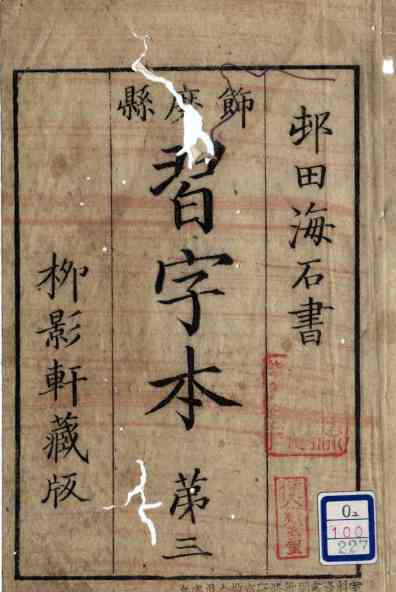 邨田海石書
飾磨縣
習字本 第三
柳影軒藏版
O2
100
227